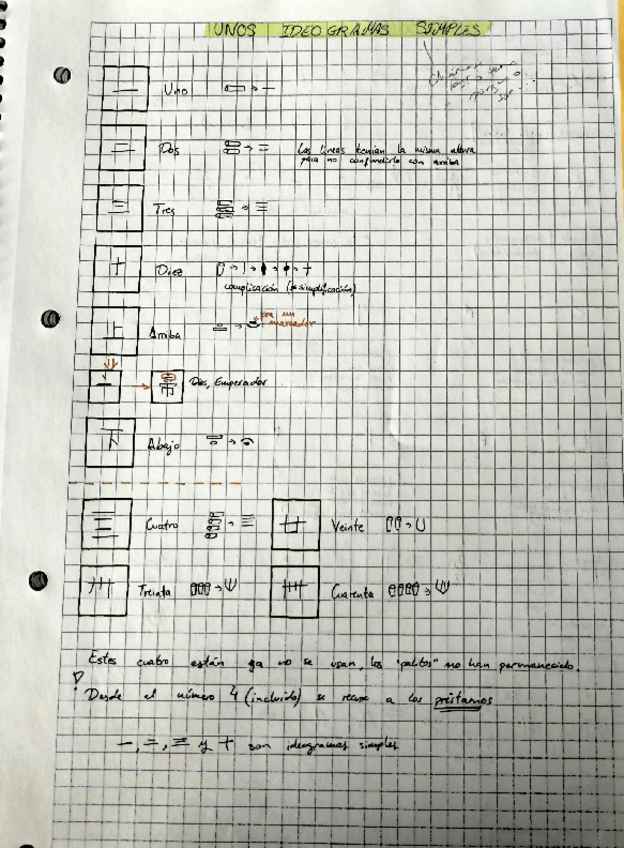 UNOS IDEOGRAMAS SIMPLES
一 Uno
二 Dos Las líneas tenían la misma altura
para no confundirlo con arriba
三 Tres
十 Diez
complicación (≠ simplificación)
上 Arriba era un
marcador
帝 Dios, Emperador
下 Abajo
亖 Cuatro 廿 Veinte
卅 Treinta 卌 Cuarenta
Estos cuatro están ya no se usan, los "palitos" no han permanecido.
! Desde el número 4 (incluido) se recurre a los préstamos
一, 二, 三 y 十 son ideogramas simples